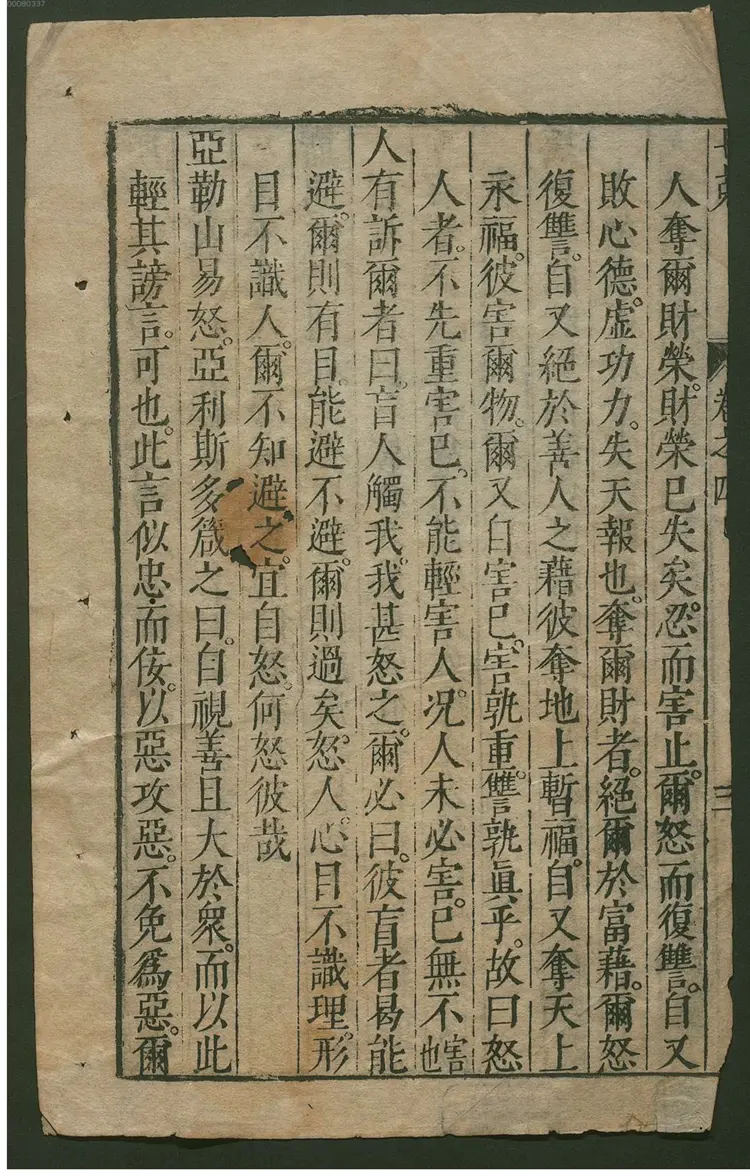 00080337
七克 卷之四 三
人奪爾財榮。財榮已失矣。忍而害止。爾怒而復讐。自又
敗心德。虛功力。失天報也。奪爾財者。絕爾於富藉。爾怒
復讐。自又絕於善人之藉。彼奪地上暫福。自又奪天上
永福。彼害爾物。爾又自害己。害孰重。讐孰眞乎。故曰。怒
人者。不先重害己。不能輕害人。况人未必害。己無不害也
人有訴爾者曰。盲人觸我。我甚怒之。爾必曰。彼盲者曷能
避。爾則有目。能避不避。爾則過矣。怒人。心目不識理。形
目不識人。爾不知避之。宜自怒。何怒彼哉
亞勒山易怒。亞利斯多箴之曰。自視善且大於衆。而以此
輕其謗言。可也。此言似忠而佞。以惡攻惡。不免爲惡。爾